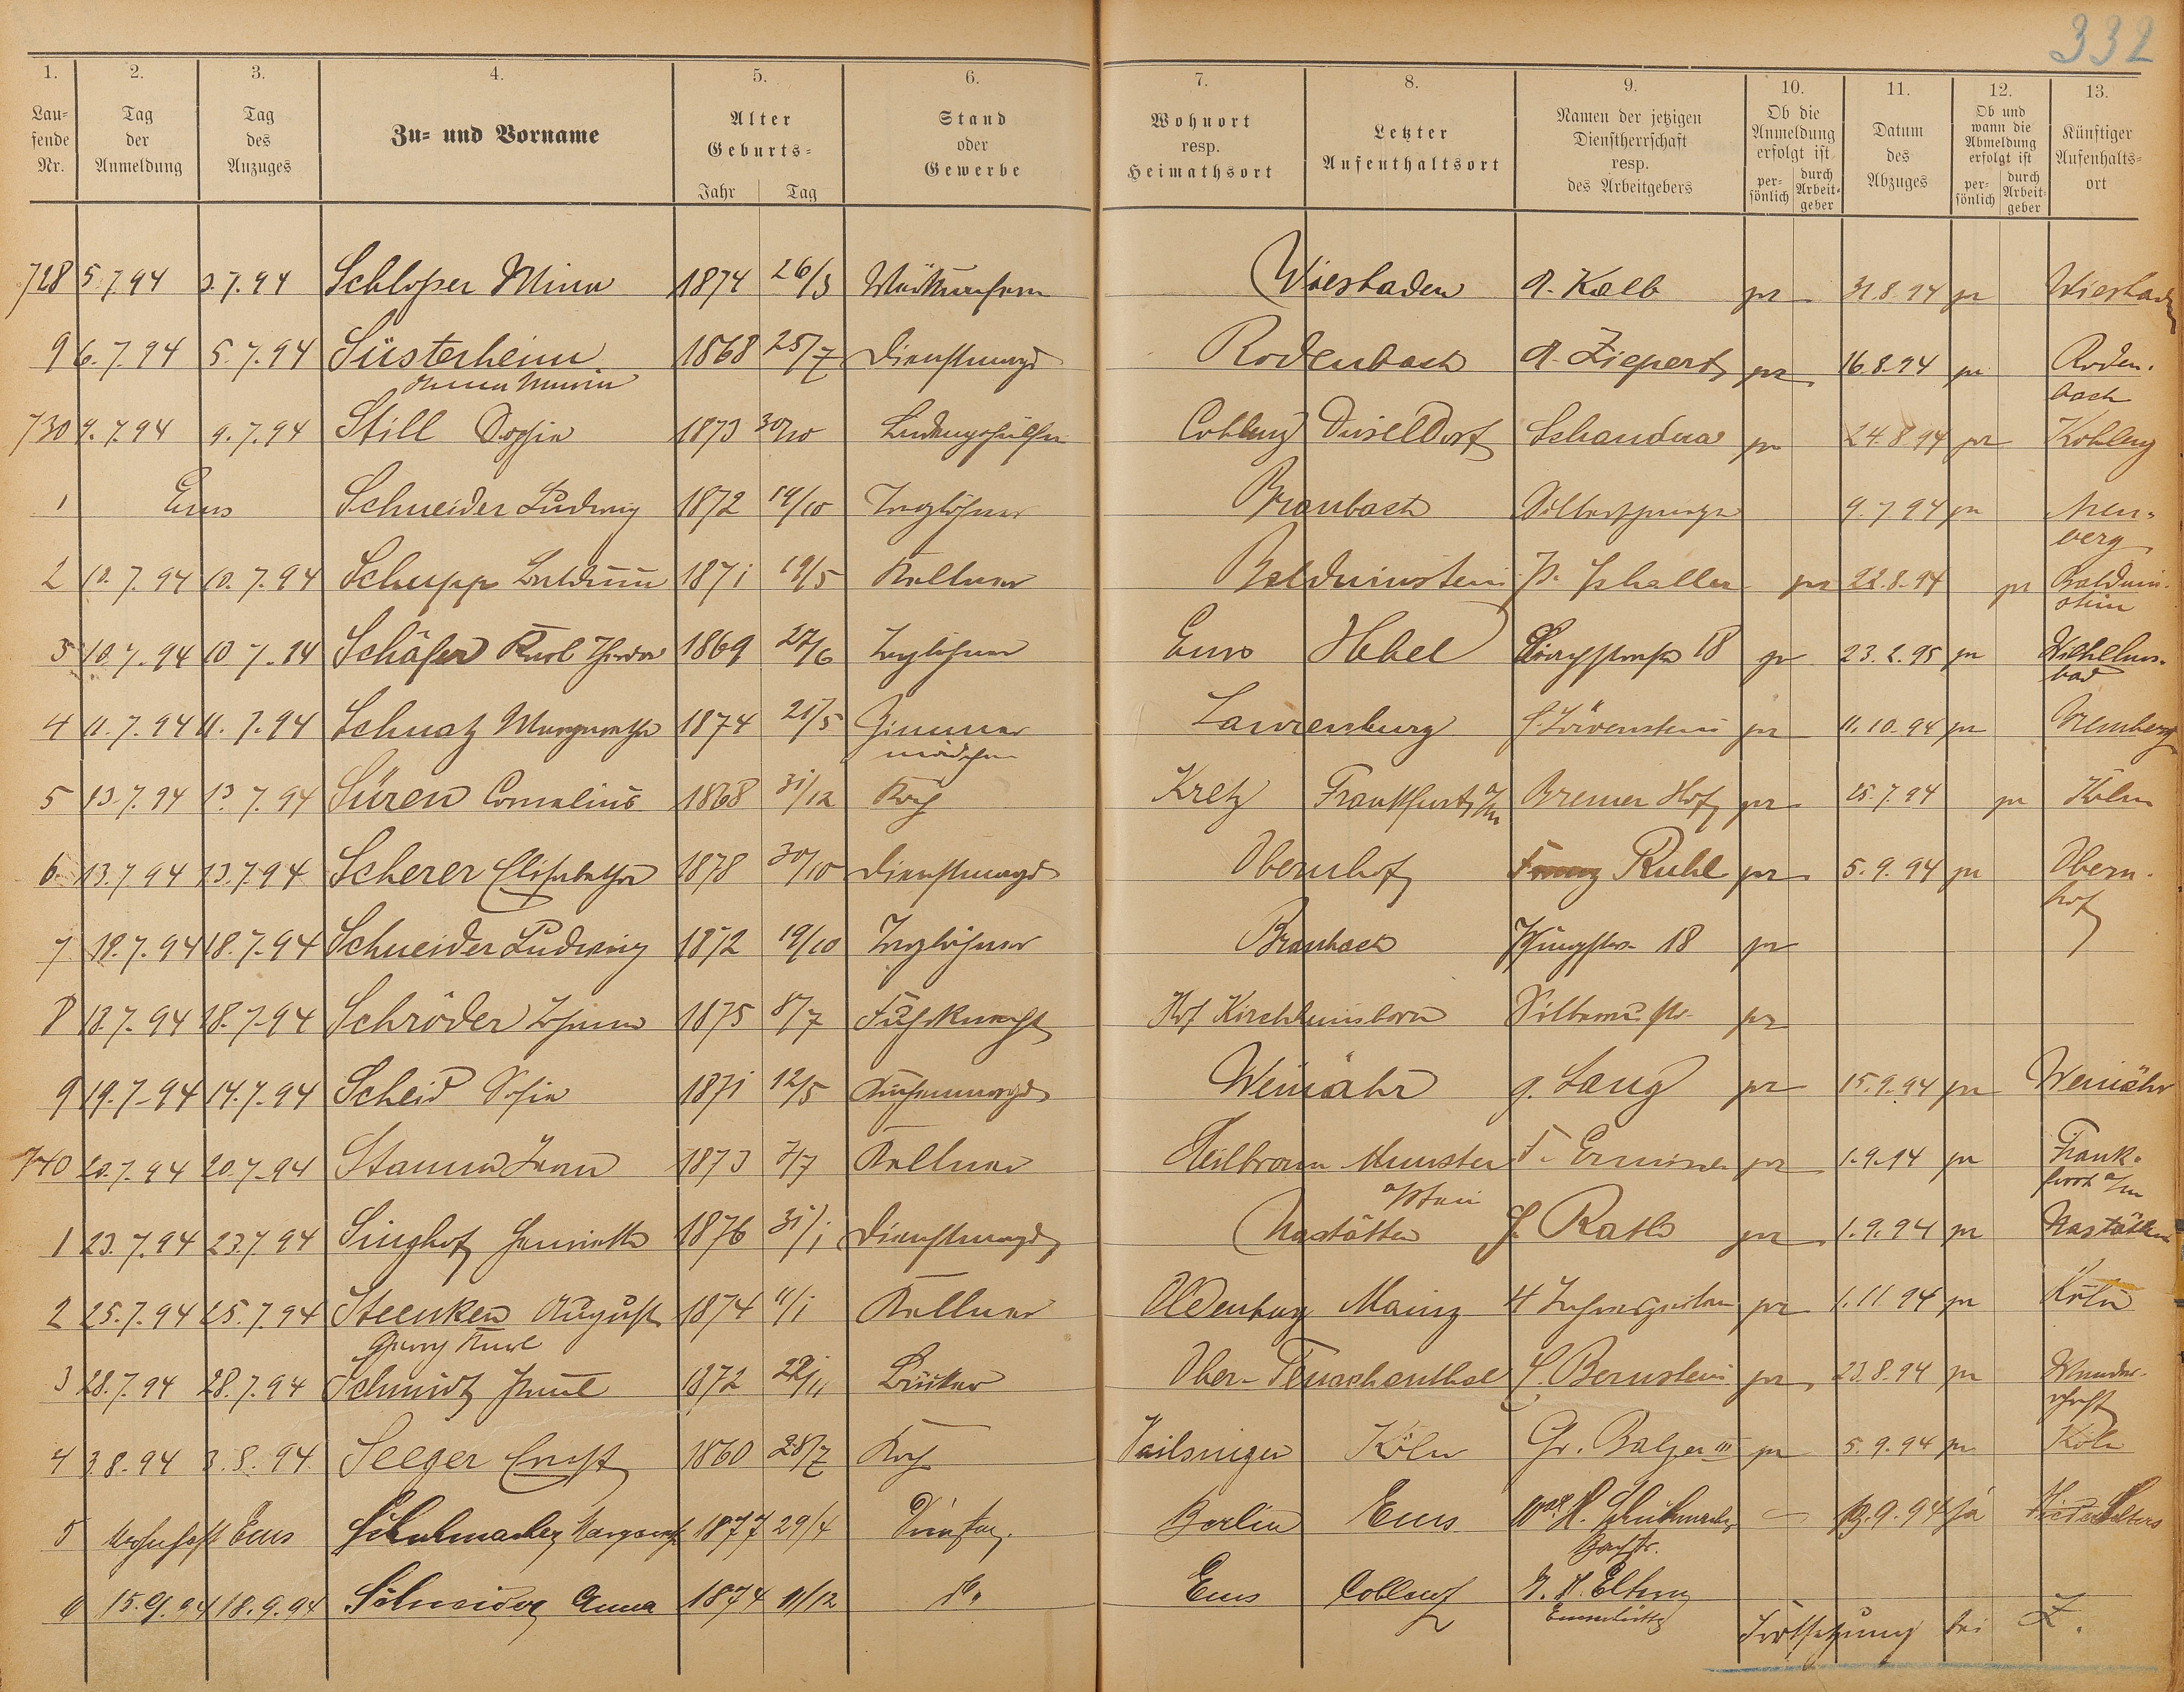 332
1. 2. 3. 4. 5. 6. 7. 8. 9. 10. 11. 12. 13.
Lau-
fende
Nr.
Tag
der
Anmeldung
Tag
des
Anzuges
Zu- und Vorname
Alter
Geburts-
Jahr Tag
Stand
oder
Gewerbe
Wohnort
resp.
Heimathsort
Letzter
Aufenthaltsort
Namen der jetzigen
Dienstherrschaft
resp.
des Arbeitgebers
Ob die
Anmeldung
erfolgt ist
per-
sönlich
durch
Arbeit-
geber
Datum
des
Abzuges
Ob und
wann die
Abmeldung
erfolgt ist
per-
sönlich
durch
Arbeit-
geber
Künftiger
Aufenthalts-
ort
728 5.7.94 3.7.94 Schloßer Mina 1874 26/3 Wiesbaden A. Kalb pr 31.8.94 pr Wiesbaden
9 6.7.94 5.7.94 Süsterheim 1868 25/7 Dienstmagd Rodenbach A. Ziepert pr 16.8.94 pr Roden-
Anna Maria bach
730 9.7.94 9.7.94 Still Sophia 1873 30/10 Coblenz Düsseldorf Schandua pr 24.8.94 pr Koblenz
1 Ems Schneider Ludwig 1872 19/10 Taglöhner Braubach 9.7.94 pr Aren-
berg
2 10.7.94 10.7.94 Schupp Balduin 1871 19/5 Kellner Balduinstein pr 22.8.94 pr Balduin-
stein
3 10.7.94 10.7.94 Schäfer Karl Theodor 1869 27/6 Taglöhner Ems Hebel 18 pr 23.2.95 pr Wilhelms-
bad
4 11.7.94 11.7.94 Schnatz Margaretha 1874 21/5 Zimmer Laurenburg Löwenstein pr 11.10.94 pr Aremberg
mädchen
5 13.7.94 13.7.94 Süren Cornelius 1868 31/12 Koch Kretz Frankfurt a/m Bremer Hof pr 25.7.94 pr Köln
6 13.7.94 13.7.94 Scherer Elisabetha 1878 30/10 Dienstmagd Obernhof Franz Ruhl pr 5.9.94 pr Obern-
hof
7 18.7.94 18.7.94 Schneider Ludwig 1872 19/10 Taglöhner Braubach Pfingstw. 18 pr
8 18.7.94 18.7.94 Schröder Johann 1875 8/7 Fuhrknecht Hof pr
9 19.7.94 14.7.94 Scheid Sofia 1871 12/5 Küchenmagd Weinähr g. Lang pr 15.9.94 pr Weinähr
740 20.7.94 20.7.94 Stamm Jean 1873 7/7 Kellner Heilbronn Münster pr 1.9.94 pr Frank-
a/Stein furt a/m
1 23.7.94 23.7.94 Singhof Henriette 1876 31/1 Dienstmagd Nastätten J. Rath pr 1.9.94 pr Nastätten
2 25.7.94 25.7.94 Steenken August 1874 11/1 Kellner Oldenburg Mainz 4 Jahreszeiten pr 1.11.94 pr Köln
Georg Karl
3 28.7.94 28.7.94 Schmidt Paul 1872 22/11 Bäcker Ober-Teuschenthal Bernstein pr 23.8.94 pr Wander-
schaft
4 3.8.94 3.8.94 Seeger Ernst 1860 28/7 Koch Köln Gr. Balzer III pr 5.9.94 pr Köln
5 wohnhaft Ems Schuhmacher Margareth 1877 29/4 Berlin Ems H. Schuhmacher 13.9.94 ja
Bachstr.
6 15.9.94 18.9.94 Schneider Anna 1874 11/12 do. Ems Coblenz
Emserhütte
Fortsetzung bei Z.